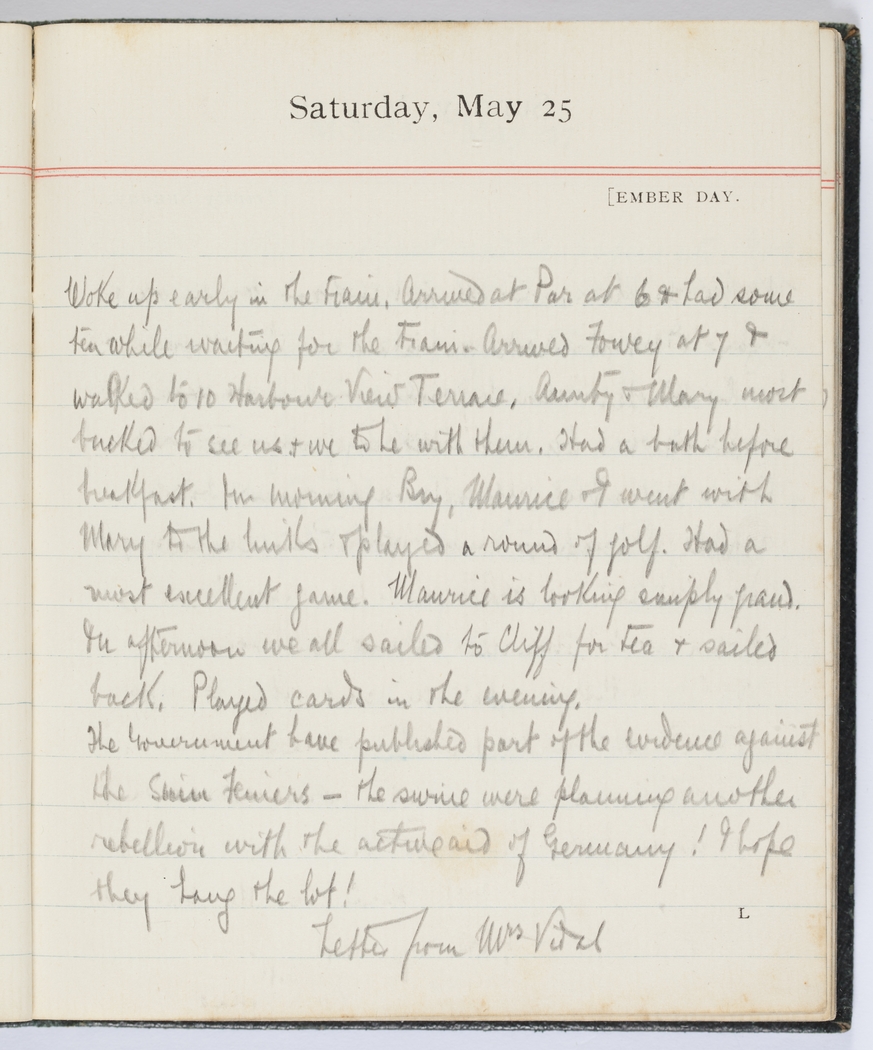 Saturday, May 25
[EMBER DAY.
Woke up early in the train. Arrived at Par at 6 & had some
tea while waiting for the train. Arrived Fowey at 7 &
walked to 10 Harbour View Terrace. Aunty & Mary most
bucked to see us & we to be with them. Had a bath before
breakfast. In morning Roy, Maurice & I went with
Mary to the links & played a round of golf. Had a
most excellent game. Maurice is looking simply grand.
In afternoon we all sailed to Cliff for tea & sailed
back. Played cards in the evening.
The Government have published part of the evidence against
the Sinn Feiners – the swine were planning another
rebellion with the active aid of Germany! I hope
they hang the lot!
L
Letter from Mrs Vidal